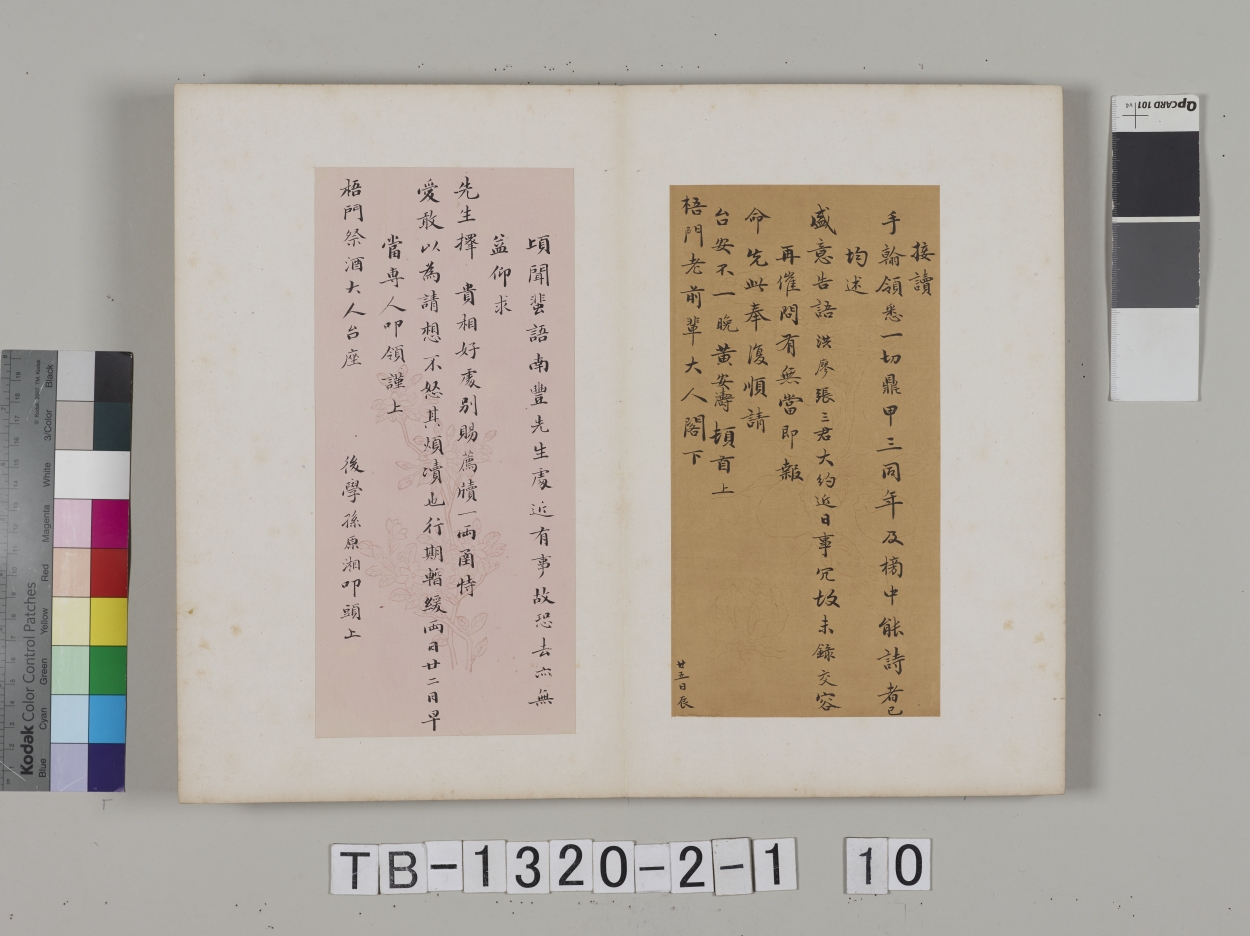 接讀
手翰領悉一切鼎甲三同年及榜中能詩者已
均述
盛意告語洪廖張三君大約近日事冗故未錄交容
再催問有無當即報
命先此奉復順請
台安不一晚黃安濤頓首上
梧門老前輩大人閣下
廿五日辰
頃聞蜚語南豐先生處近有事故恐去亦無
益仰求
先生擇 貴相好處別賜薦牘一兩函恃
愛敢以為請想不怒其煩瀆也行期暫緩兩日廿二日早
當専人叩領謹上
梧門祭酒大人台座
後學孫原湘叩頭上
TB-1320-2-1 10
QpCARD 101 v4
Kodak Color Control Patches
Blue Cyan Green Yellow Red Magenta White 3/Color Black